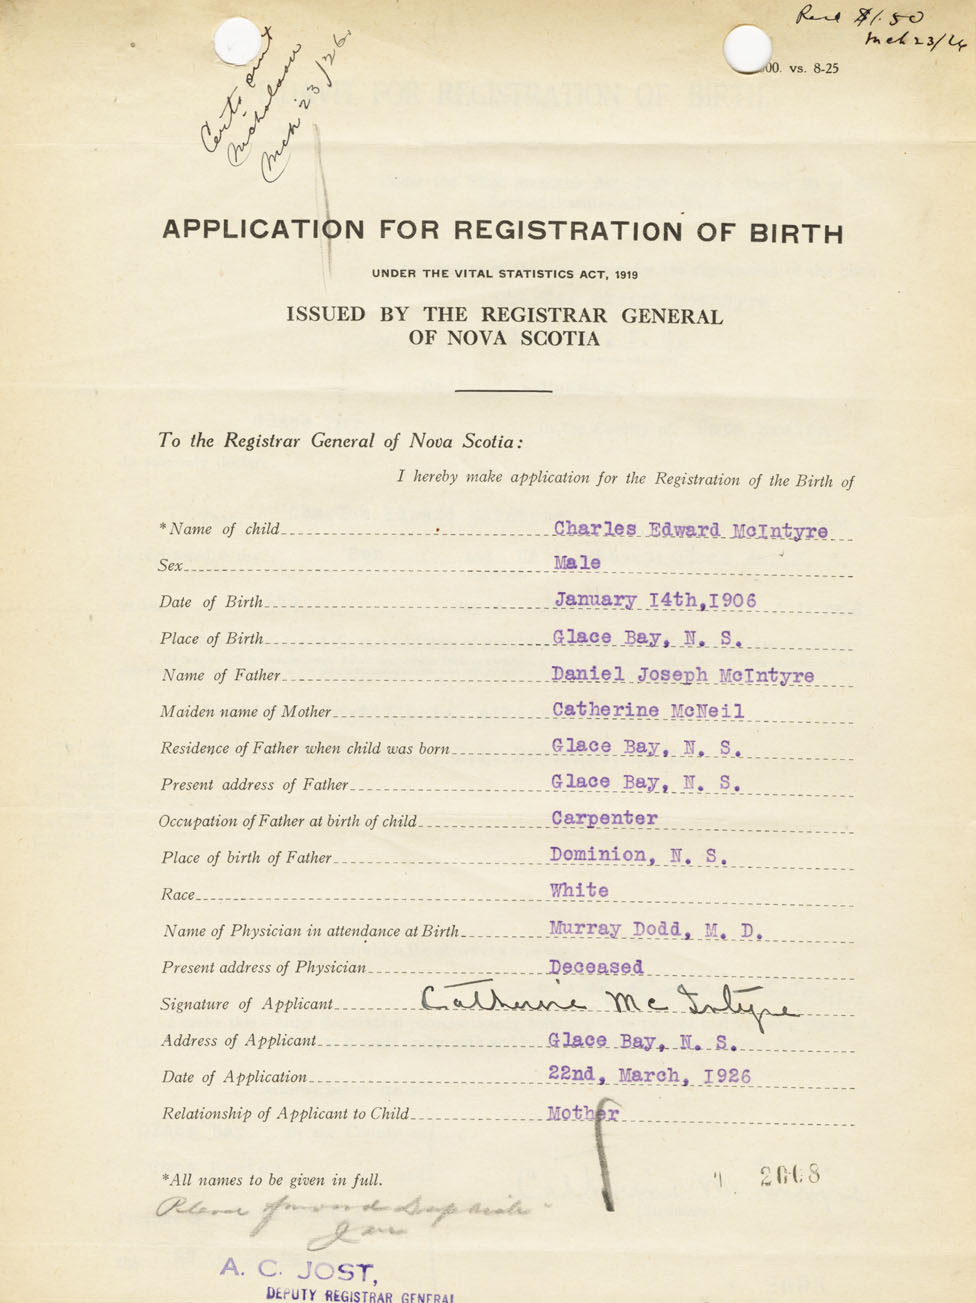 Recd $1.50
Mch 23/26
Nicholson
Mch 23/26.
00. vs. 8-25
APPLICATION FOR REGISTRATION OF BIRTH
UNDER THE VITAL STATISTICS ACT, 1919
ISSUED BY THE REGISTRAR GENERAL
OF NOVA SCOTIA
To the Registrar General of Nova Scotia:
I hereby make application for the Registration of the Birth of
*Name of child Charles Edward McIntyre
Sex Male
Date of Birth January 14th,1906
Place of Birth Glace Bay, N. S.
Name of Father Daniel Joseph McIntyre
Maiden name of Mother Catherine McNeil
Residence of Father when child was born Glace Bay, N. S.
Present address of Father Glace Bay, N. S.
Occupation of Father at birth of child Carpenter
Place of birth of Father Dominion, N. S.
Race White
Name of Physician in attendance at Birth Murray Dodd, M. D.
Present address of Physician Deceased
Signature of Applicant Catherine McIntyre
Address of Applicant Glace Bay, N. S.
Date of Application 22nd, March, 1926
Relationship of Applicant to Child Mother
*All names to be given in full.
2068
Please
A. C. JOST,
DEPUTY REGISTRAR GENERAL